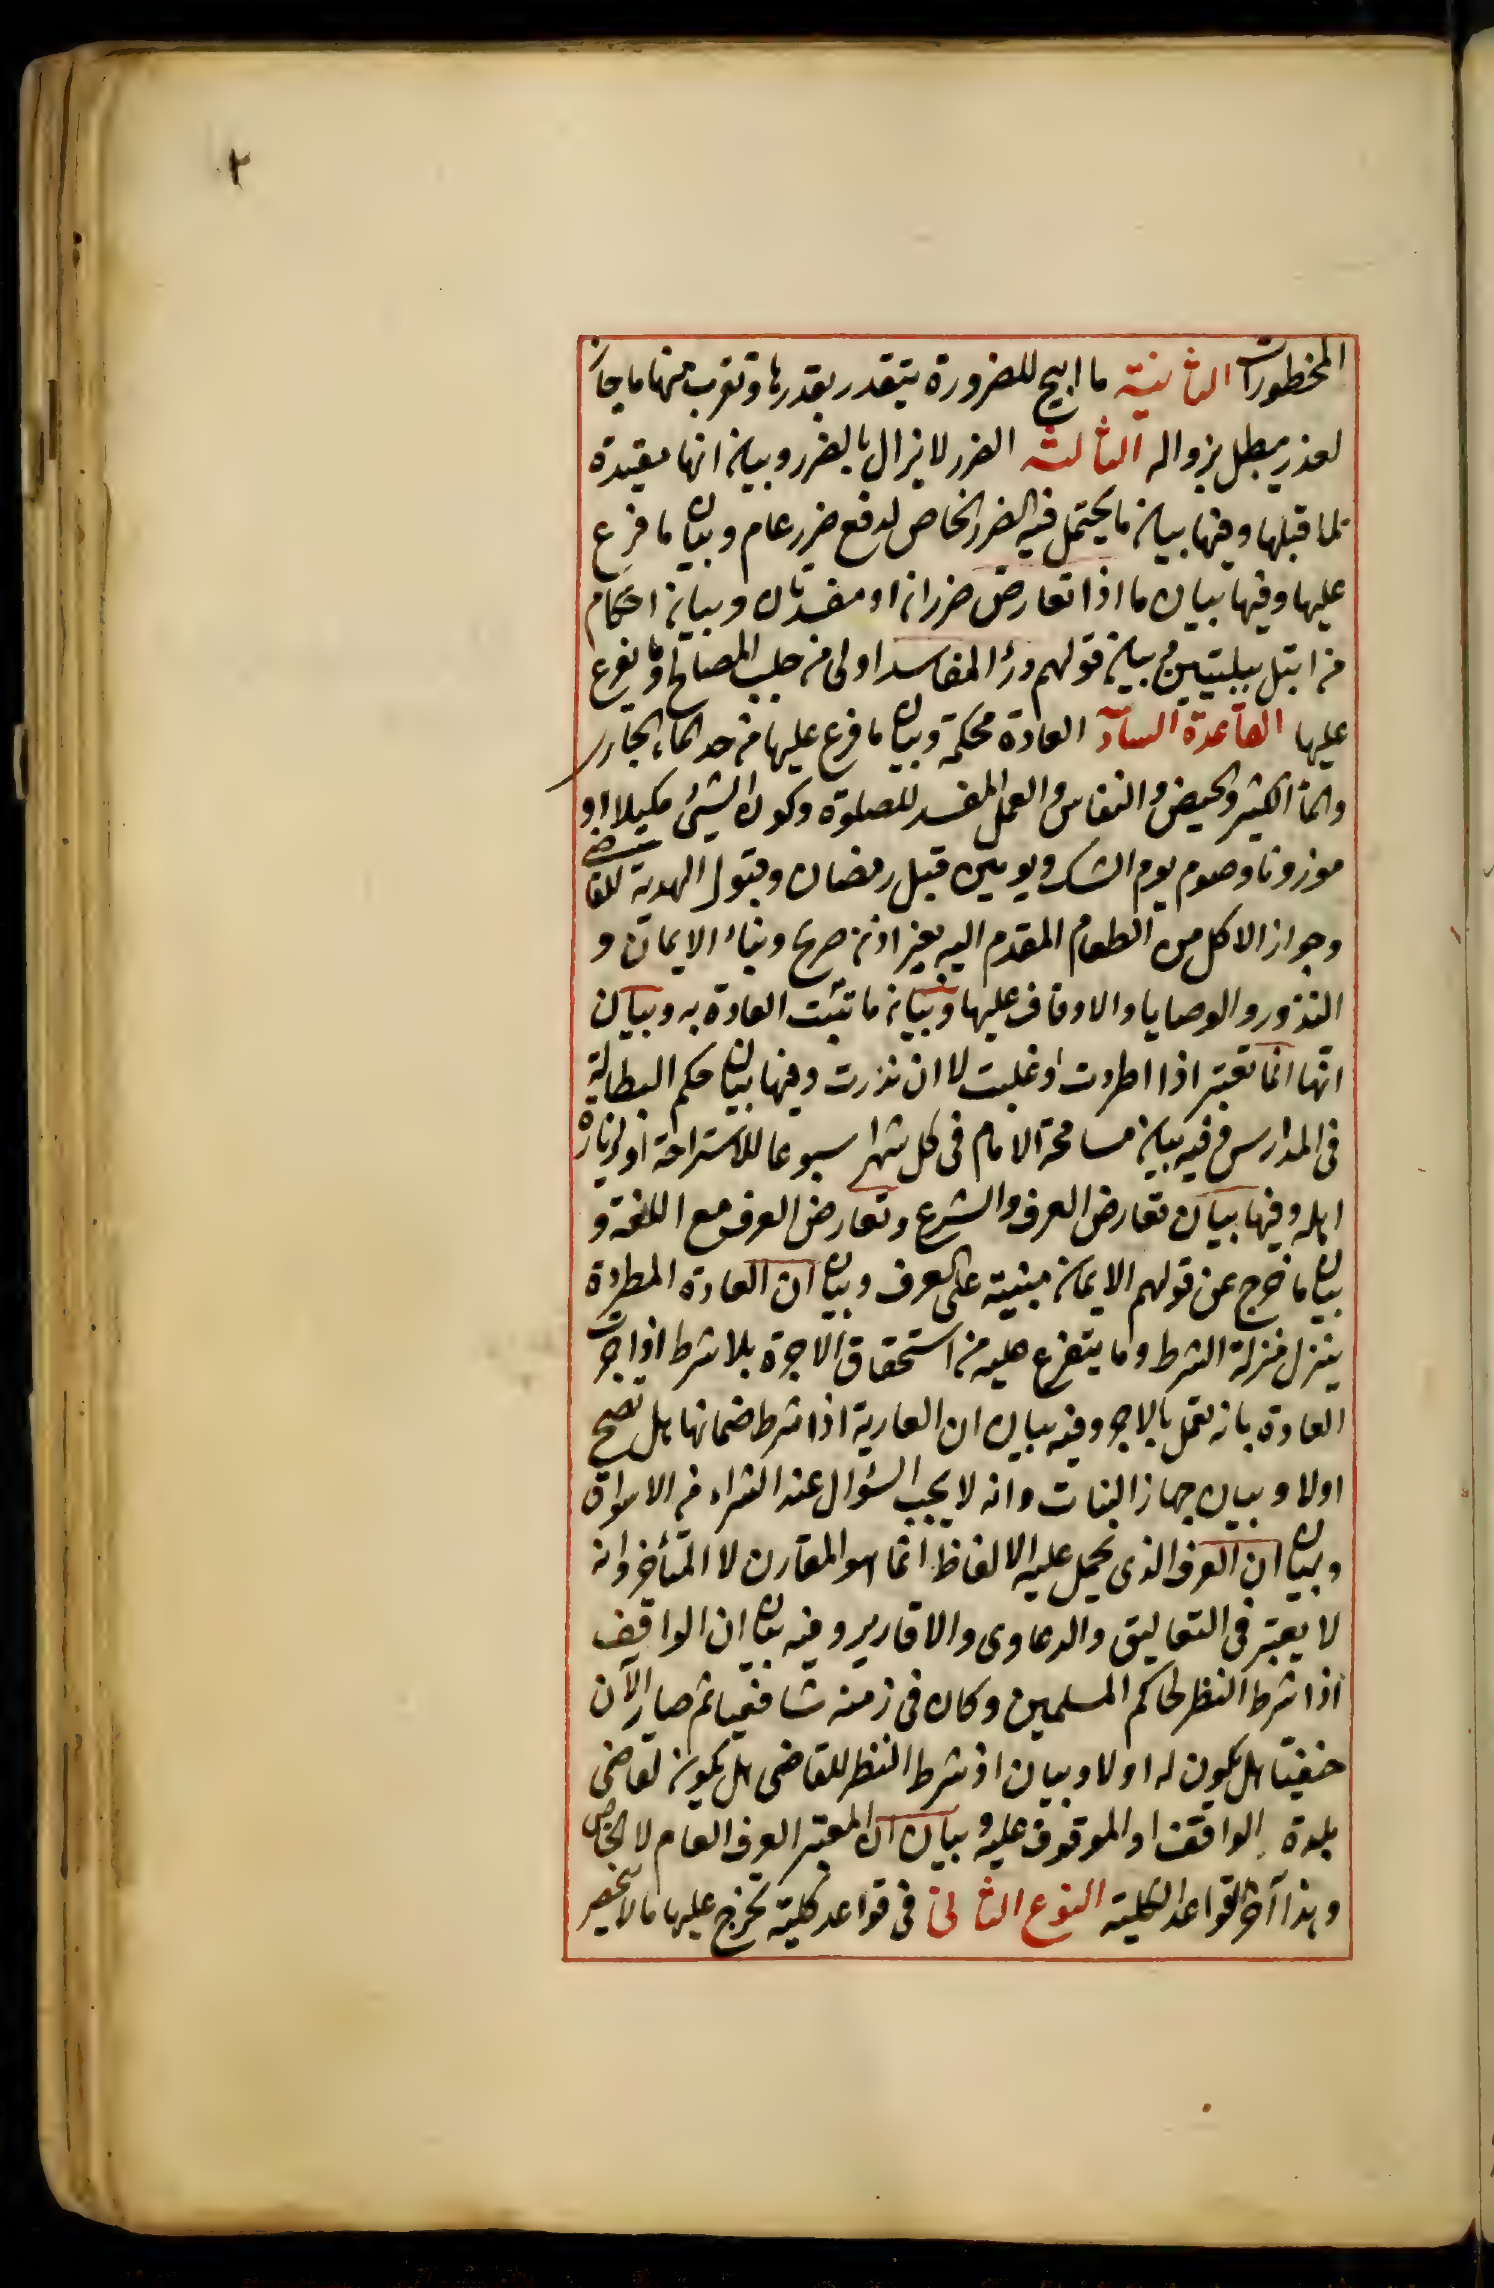 ٢
المحظورات الثانية ما ابيح للضرورة يتقدر بقدرها وتقرب منها ما جاز
لعذر يبطل بزواله الثالثة الضرر لا يزال بالضرر وبيان انها مقيدة
لما قبلها وفيها بيان ما يحتمل فيه الضرر الخاص لدفع ضرر عام وبيان ما فرع
عليها وفيها بيان ما اذا تعارض ضرران او مفسدتان وبيان احكام
من ابتلى ببليتين وبيان قولهم درؤ المفاسد اولى من جلب المصالح وما يفرع
عليها القاعدة السادسة العادة محكمة وبيان ما فرع عليها من حد الماء الجارى
والماء الكثير والحيض والنفاس والعمل المفسد للصلوة وكون الشيئ مكيلا او
موزونا وصوم يوم الشك ويومين قبل رمضان وقبول الهدية للقاضى
وجواز الاكل من الطعام المقدم اليه بغير اذن صريح وبناء الايمان و
النذور والوصايا والاوقاف عليها وبيان ما تثبت العادة به وبيان
انها انما تعتبر اذا اطردت او غلبت لا ان ندرت وفيها بيان حكم البطالة
فى المدارس وفيه بيان مسامحة الامام فى كل شهر اسبوعا للاستراحة او لزيارة
اهله وفيها بيان تعارض العرف والشرع وتعارض العرف مع اللغة و
بيان ما خرج عن قولهم الايمان مبنية على العرف وبيان ان العادة المطردة
ينزل منزلة الشرط وما يتفرع عليه من استحقاق الاجرة بلا شرط اذا جرت
العادة بانه يعمل بالاجر وفيه بيان ان العارية اذا شرط ضمانها هل تصح
اولا وبيان جهاز البنات وانه لا يجب السؤال عند الشراء من الاسواق
وبيان ان العرف الذى تحمل عليه الالفاظ انما هو المقارن لا المتأخر وانه
لا يعتبر فى التعاليق والدعاوى والاقارير وفيه بيان ان الواقف
اذا شرط النظر لحاكم المسلمين وكان فى زمنه شافعيا ثم صار الآن
حنفيا هل يكون له اولا وبيان اذ شرط النظر للقاضى هل يكون لقاضى
بلدة الواقف او الموقوف عليه وبيان ان المعتبر العرف العام لا الخاص
وهذا آخر القواعد الكلية النوع الثانى فى قواعد كلية تخرج عليها ما لا ينحصر